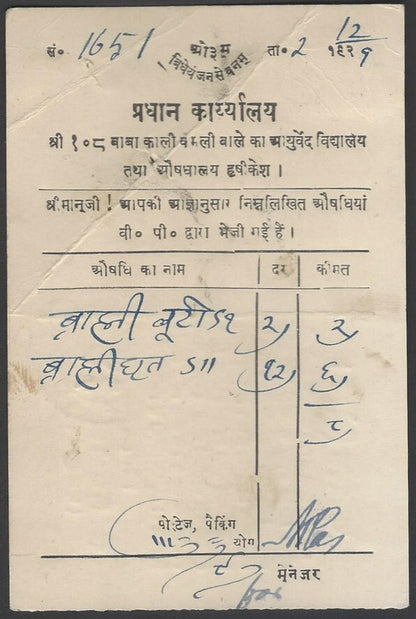 सं० 1651 ओ३म् ता० 2 12
विधेयंजनसेवनम् १९२९
प्रधान कार्य्यालय
श्री १०८ बाबा काली कमली वाले का आयुर्वेद विद्यालय
तथा औषधालय हृषीकेश ।
श्रीमान्जी ! आपकी आज्ञानुसार निम्नलिखित औषधियां
वी० पी० द्वारा भेजी गई हैं ।
औषधि का नाम दर कीमत
ब्राह्मी बूटी ऽ१ २) २)
ब्राह्मीघृत ऽ॥ १२) ६)
८)
पोस्टेज, पैकिंग
योग
मैनेजर